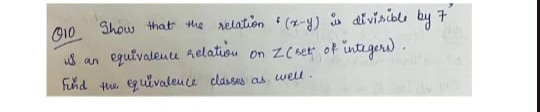 Q10 Show that the relation '(x-y) is divisible by 7'
is an equivalence relation on Z (set of integers).
Find the equivalence classes as well.